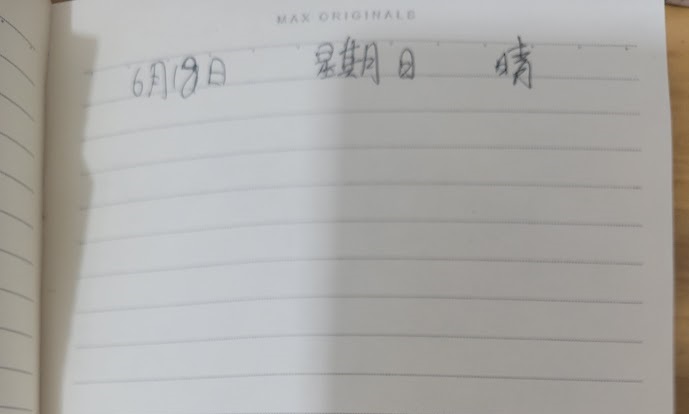 MAX ORIGINALS
6月18日 星期日 晴